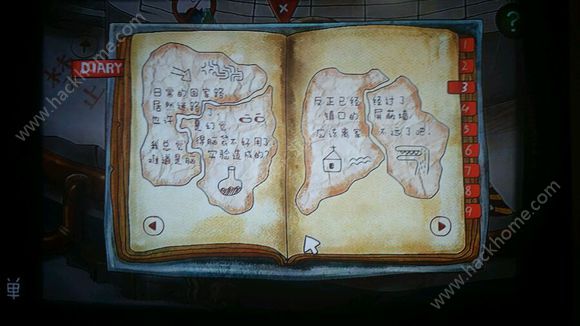 DIARY
日常的回家路
居然迷路了,
也许是幻觉
我总觉得脑袋不好用了
难道是脑实验造成的?
反正已经经过了
镇口的屏蔽墙
应该离家不远了吧.
1
2
3
4
5
6
7
8
9
?
www.hackhome.com
www.hackhome.com
www.hackhome.com